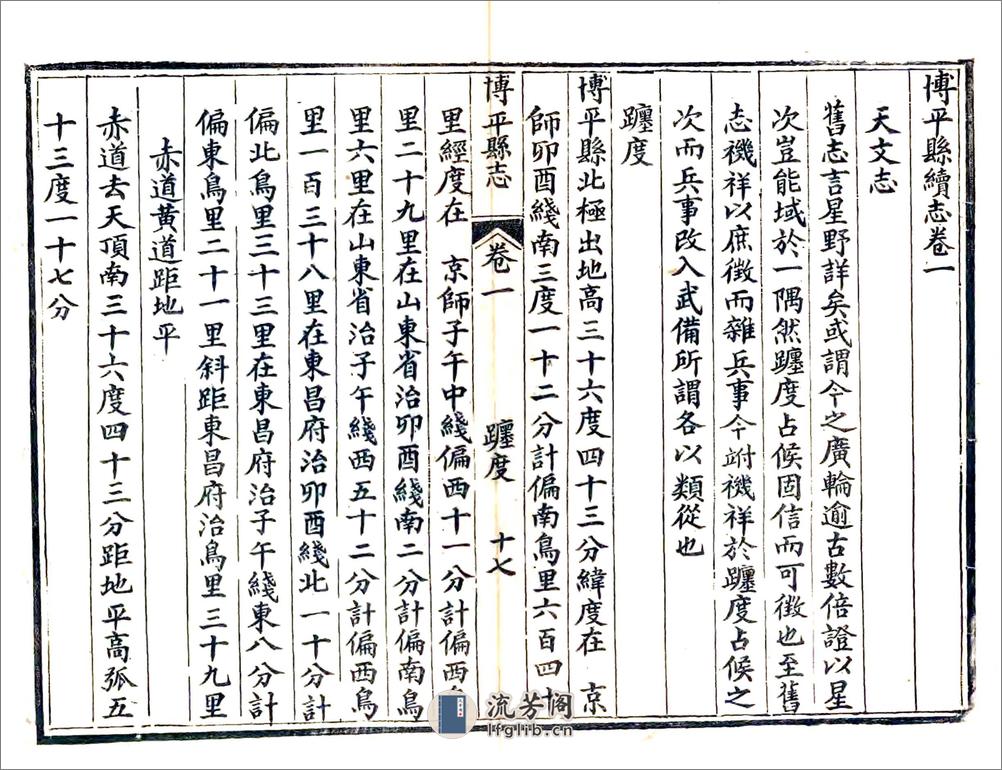 博平縣續志卷一
天文志
舊志言星野詳矣或謂今之廣輪逾古數倍證以星
次豈能域於一隅然躔度占候固信而可徵也至舊
志禨祥以庶徵而雜兵事今附禨祥於躔度占候之
次而兵事改入武備所謂各以類從也
躔度
博平縣北極出地高三十六度四十三分緯度在 京
師卯酉綫南三度一十二分計偏南鳥里六百四十
博平縣志 卷一 躔度 十七
里經度在 京師子午中綫偏西十一分計偏西
里二十九里在山東省治卯酉綫南二分計偏南鳥
里六里在山東省治子午綫西五十二分計偏西鳥
里一百三十八里在東昌府治卯酉綫北一十分計
偏北鳥里三十三里在東昌府治子午綫東八分計
偏東鳥里二十一里斜距東昌府治鳥里三十九里
赤道黃道距地平
赤道去天頂南三十六度四十三分距地平高弧五
十三度一十七分
流芳阁
lfglib.cn